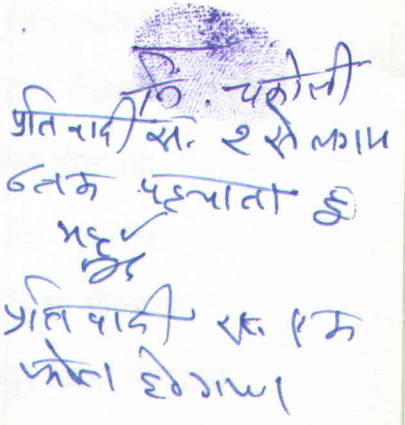 नि. चमेली
प्रतिवादी सं. २ से लगाय
८ तक पहचाता हूँ
प्रतिवादी सं. १ क
फोटो हो गया।